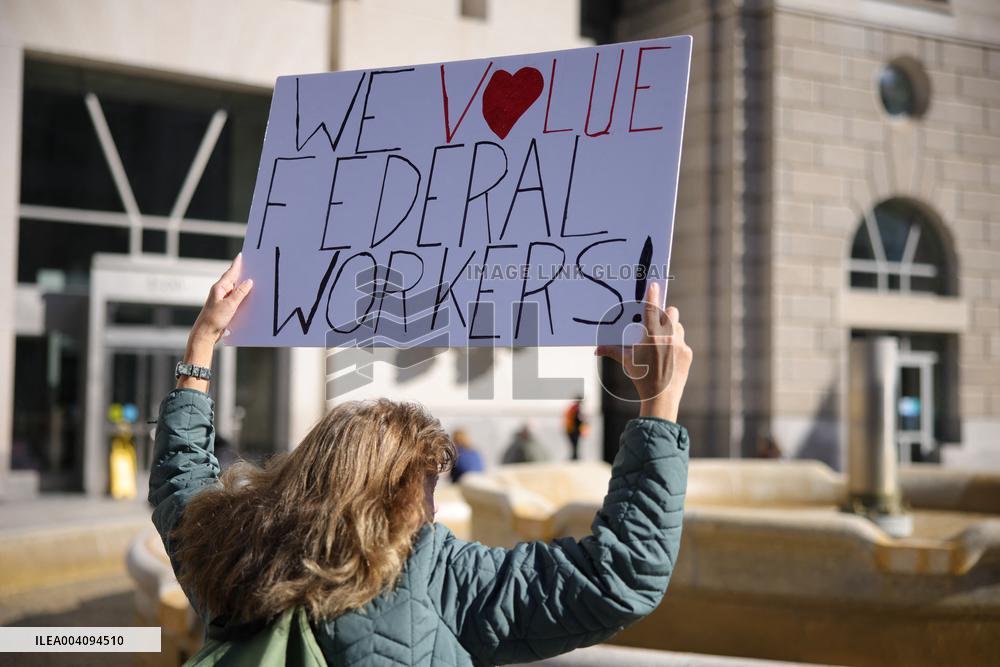 WE V❤LUE
FEDERAL
WORKERS!
IMAGE LINK GLOBAL
ILG
ILEA004094510